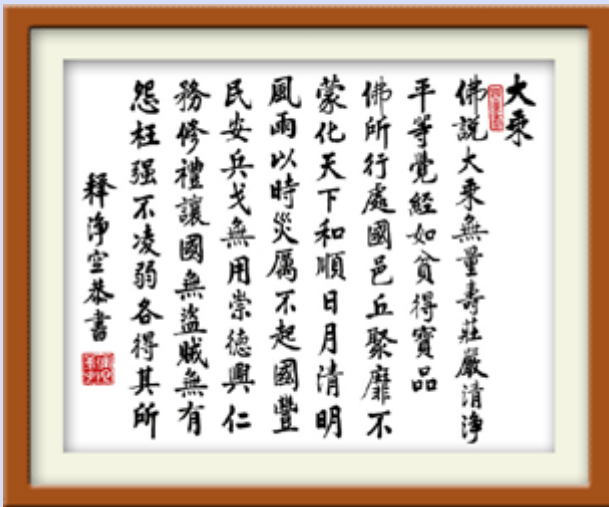 大乘
佛說大乘無量壽莊嚴清淨
平等覺經如貧得寶品
佛所行處國邑丘聚靡不
蒙化天下和順日月清明
風雨以時災厲不起國豐
民安兵戈無用崇德興仁
務修禮讓國無盜賊無有
怨枉强不凌弱各得其所
釋淨空恭書